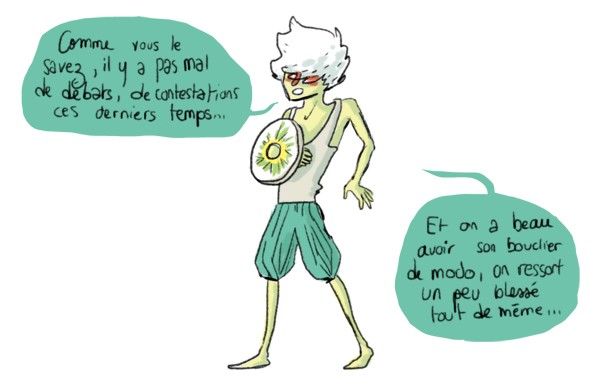 Comme vous le
savez, il y a pas mal
de débats, de contestations
ces derniers temps...
Et on a beau
avoir son bouclier
de modo, on ressort
un peu blessé
tout de même...